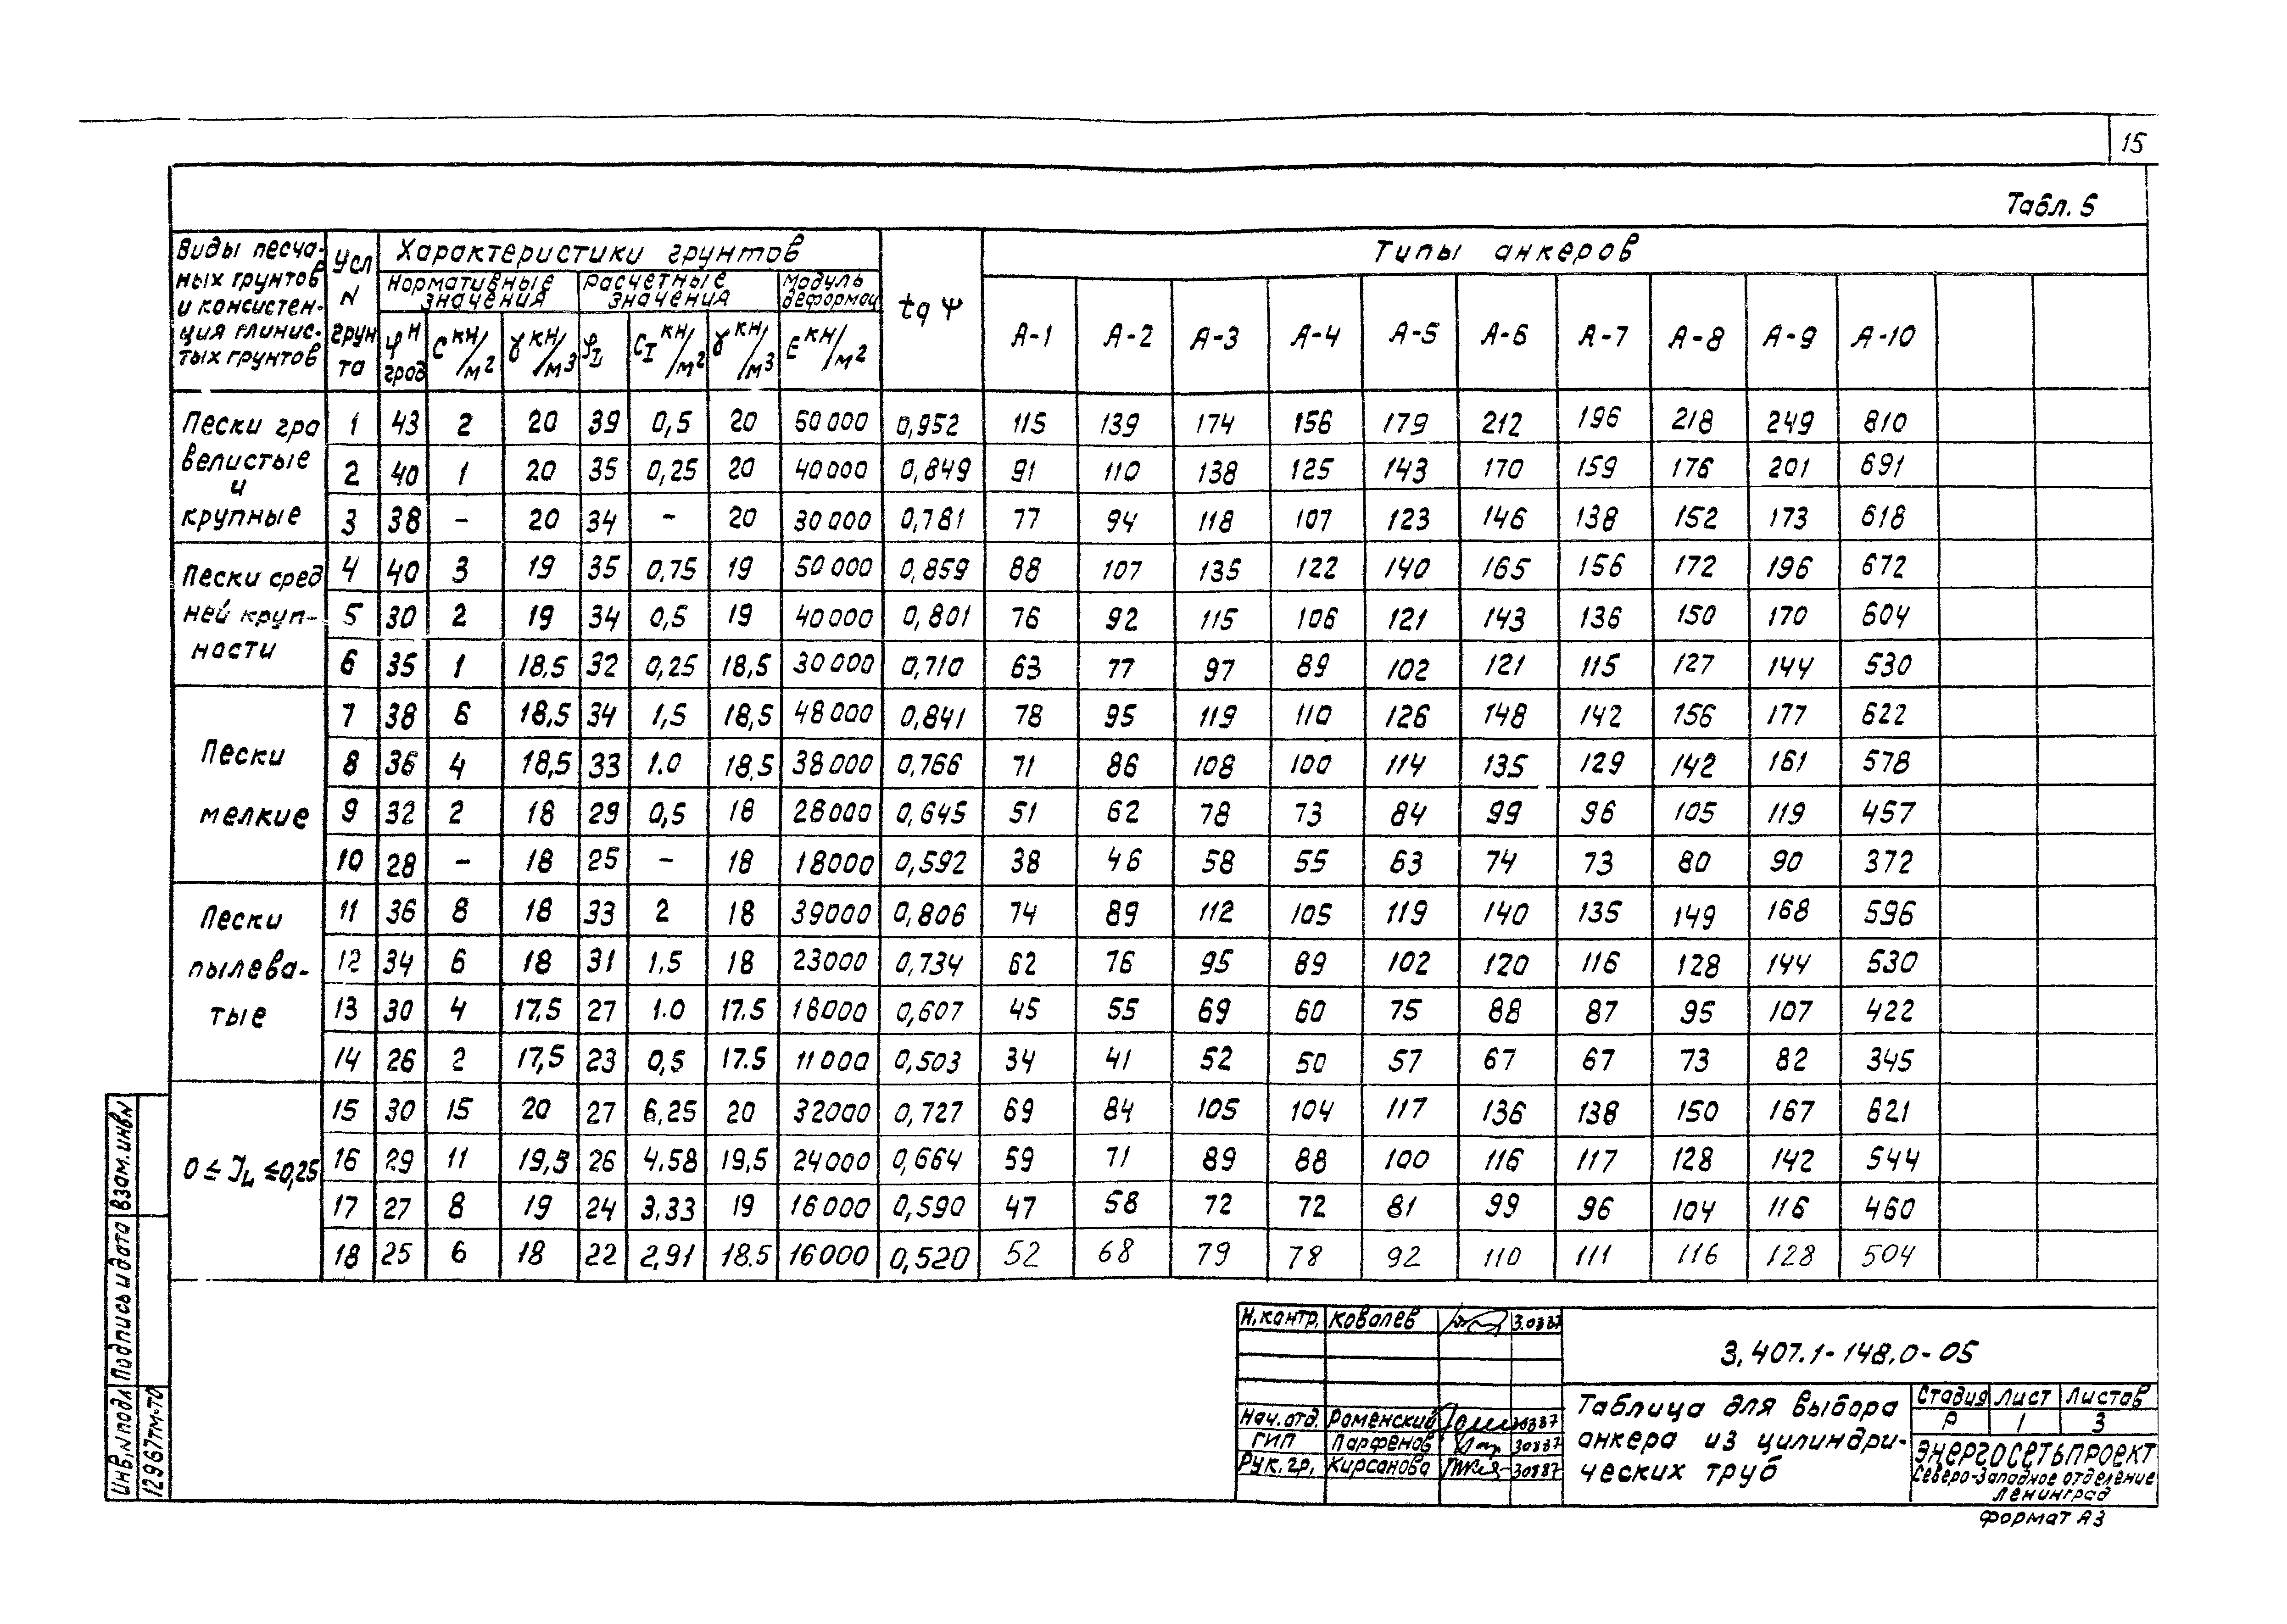 15
Табл. 5
Виды песча-
ных грунтов
и консистен-
ция глинис-
тых грунтов
Усл
N
грун
та
Характеристики грунтов
Нормативные значения
Расчетные значения
Модуль деформац
φн град
С кн/м2
γ кн/м3
φI
СI кн/м2
γ кн/м3
Е кн/м2
tg ψ
Типы анкеров
А-1 А-2 А-3 А-4 А-5 А-6 А-7 А-8 А-9 А-10
Пески гра
велистые
и
крупные
1 43 2 20 39 0,5 20 50000 0,952 115 139 174 156 179 212 196 218 249 810
2 40 1 20 35 0,25 20 40000 0,849 91 110 138 125 143 170 159 176 201 691
3 38 - 20 34 - 20 30000 0,781 77 94 118 107 123 146 138 152 173 618
Пески сред
ней круп-
ности
4 40 3 19 35 0,75 19 50000 0,859 88 107 135 122 140 165 156 172 196 672
5 30 2 19 34 0,5 19 40000 0,801 76 92 115 106 121 143 136 150 170 604
6 35 1 18,5 32 0,25 18,5 30000 0,710 63 77 97 89 102 121 115 127 144 530
Пески
мелкие
7 38 6 18,5 34 1,5 18,5 48000 0,841 78 95 119 110 126 148 142 156 177 622
8 36 4 18,5 33 1.0 18,5 38000 0,766 71 86 108 100 114 135 129 142 161 578
9 32 2 18 29 0,5 18 28000 0,645 51 62 78 73 84 99 96 105 119 457
10 28 - 18 25 - 18 18000 0,592 38 46 58 55 63 74 73 80 90 372
Пески
пылева-
тые
11 36 8 18 33 2 18 39000 0,806 74 89 112 105 119 140 135 149 168 596
12 34 6 18 31 1,5 18 23000 0,734 62 76 95 89 102 120 116 128 144 530
13 30 4 17.5 27 1.0 17.5 18000 0,607 45 55 69 60 75 88 87 95 107 422
14 26 2 17,5 23 0,5 17.5 11000 0,503 34 41 52 50 57 67 67 73 82 345
0 ≤ JL ≤0,25
15 30 15 20 27 6,25 20 32000 0,727 69 84 105 104 117 136 138 150 167 621
16 29 11 19,5 26 4.58 19,5 24000 0,664 59 71 89 88 100 116 117 128 142 544
17 27 8 19 24 3.33 19 16000 0,590 47 58 72 72 81 99 96 104 116 460
18 25 6 18 22 2,91 18.5 16000 0,520 52 68 79 78 92 110 111 116 128 504
Инв.N подл Подпись и дата Взам.инвN
12967тм-т0
Н.контр. Ковалев 3.0387
Нач.отд. Роменский 30387
ГИП Парфенов 30387
Рук.гр. Кирсанова 30387
3.407.1-148.0-05
Таблица для выбора
анкера из цилиндри-
ческих труб
Стадия Лист Листов
Р 1 3
ЭНЕРГОСЕТЬПРОЕКТ
Северо-Западное отделение
Ленинград
Формат А3